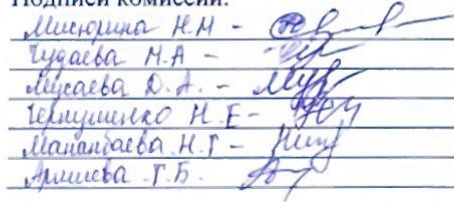 Подписи комиссии:
Мисюрина Н.М -
Чудаева М.А -
Мусаева Д.А. -
Чепушенко Н.Е -
Мананбаева Н.Г -
Г.Б.